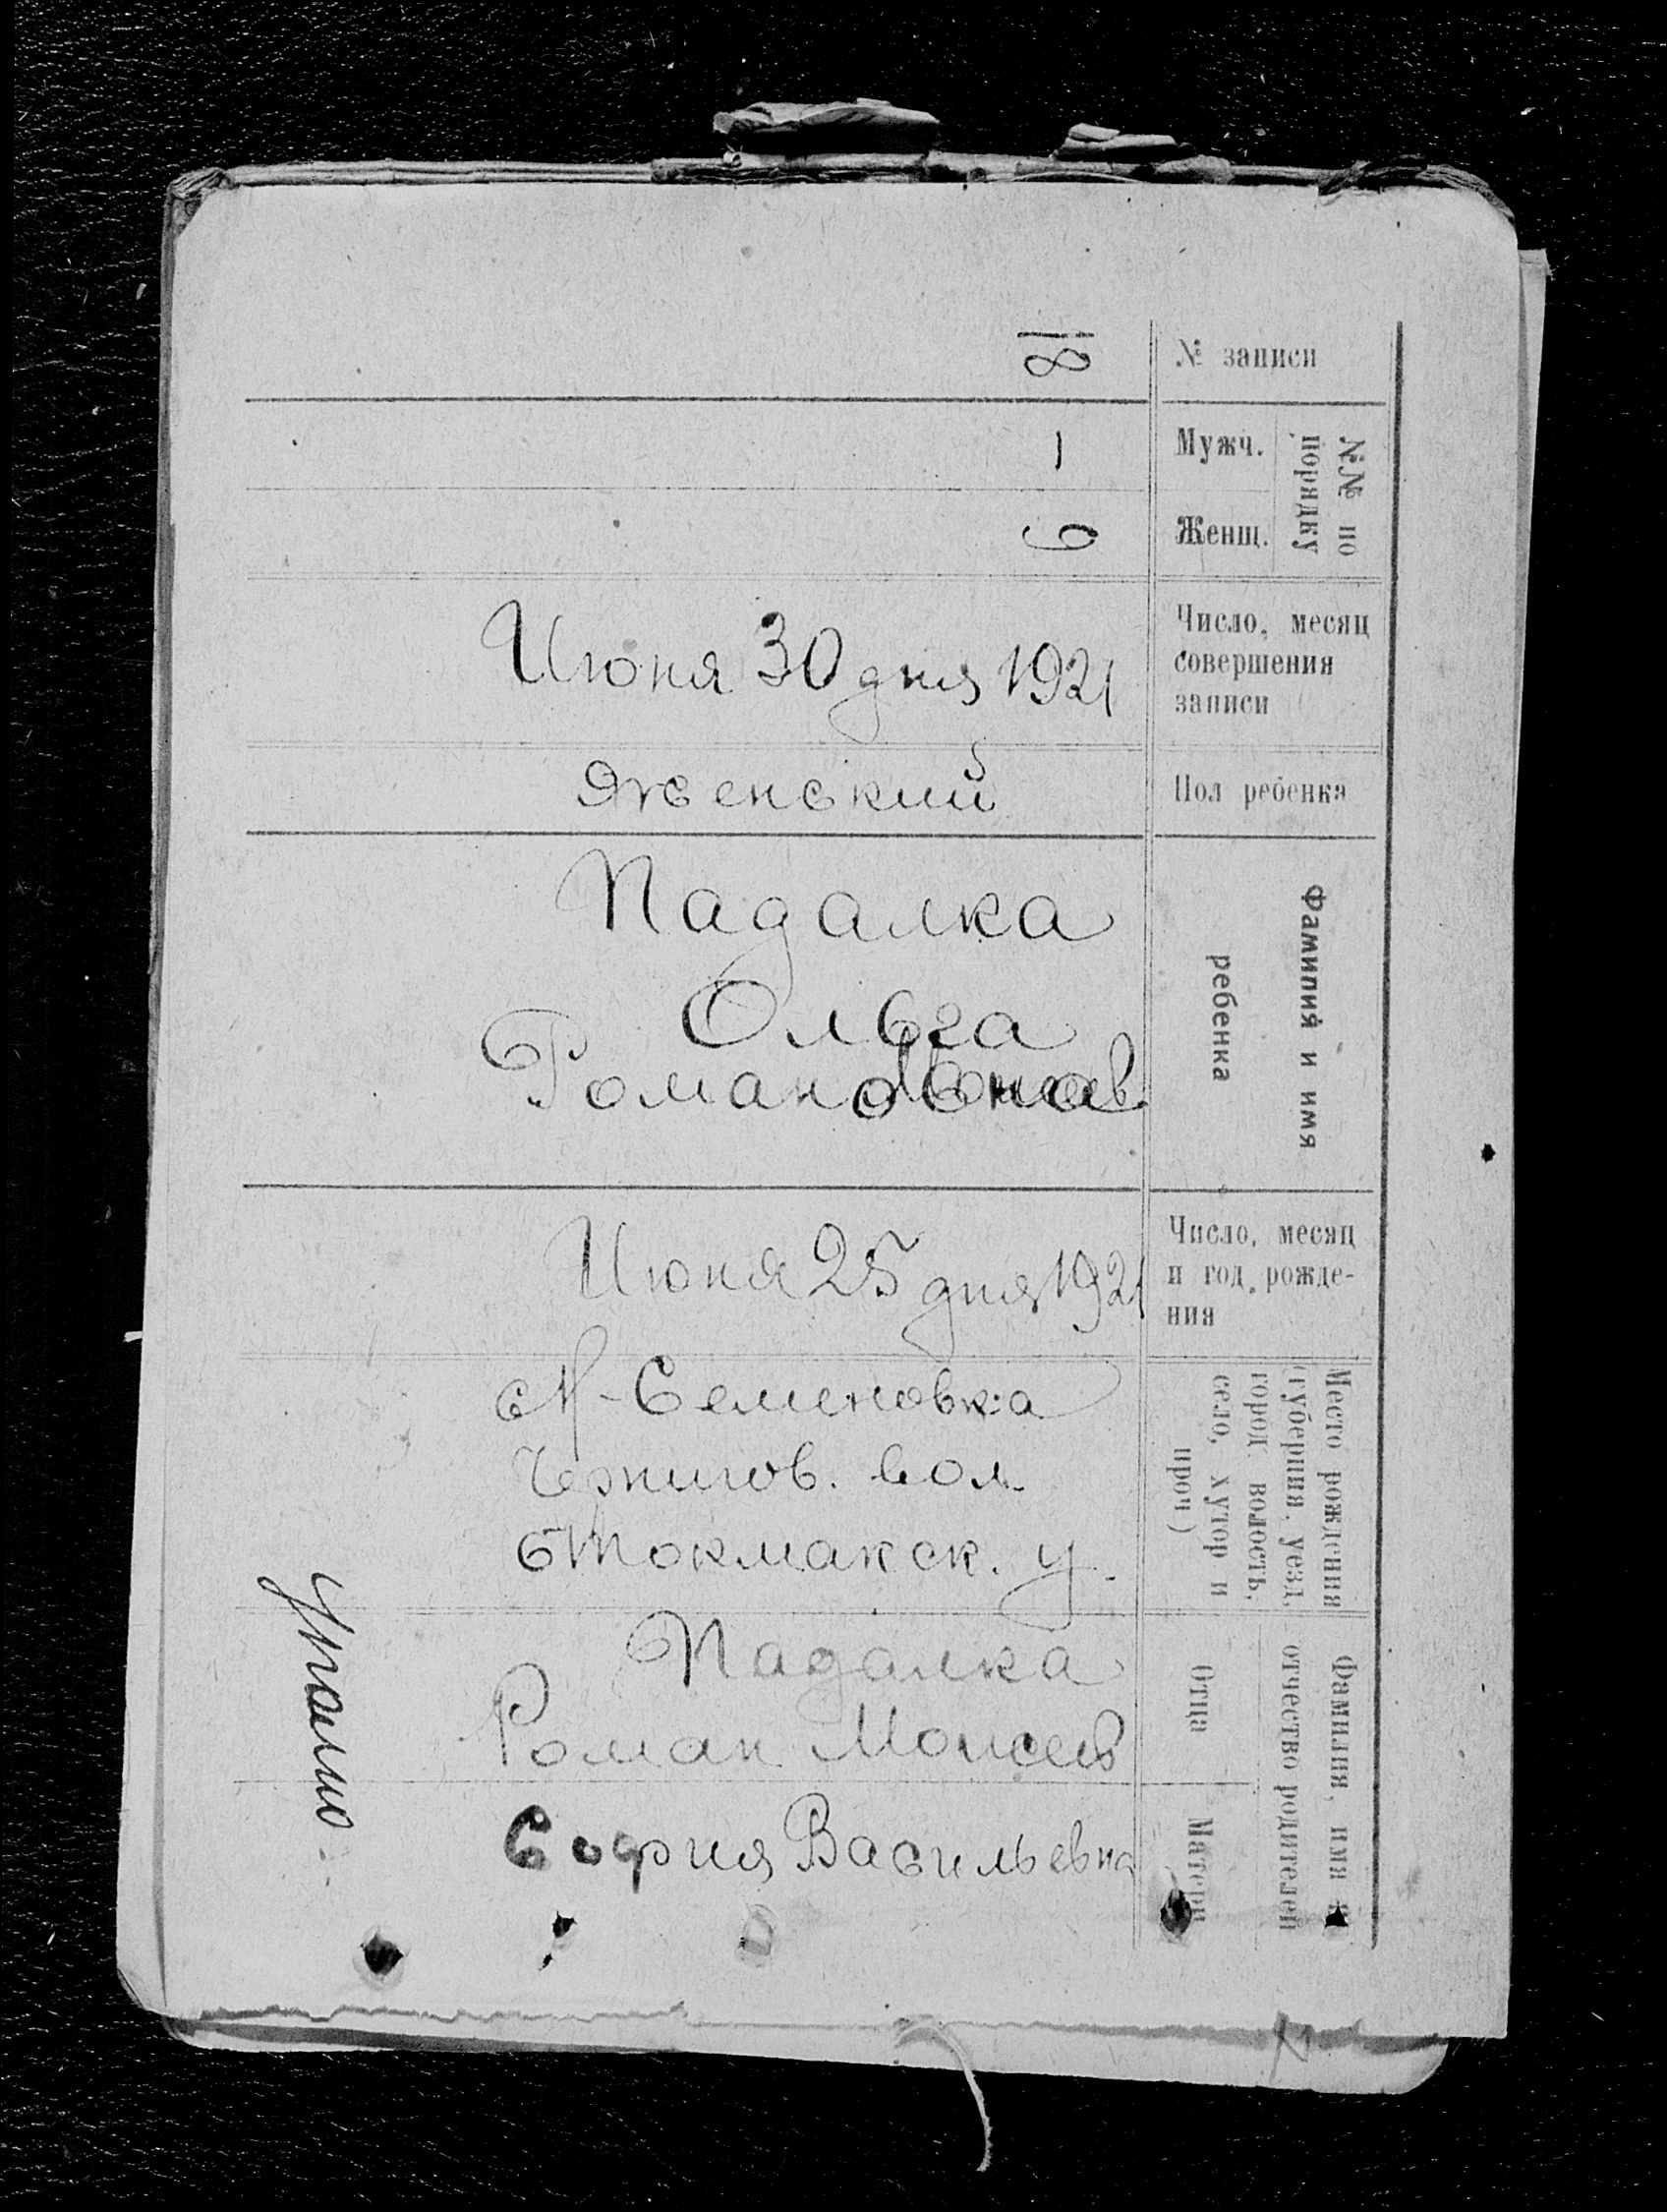 № записи
18
№№ по
порядку
Мужч.
1
Женщ.
9
Число, месяц
совершения
записи
Июня 30 дня 1921
Пол ребенка
Женский
Фамилия и имя
ребенка
Падалка
Ольга
Романовна
Число, месяц
и год рожде-
ния
Июня 25 дня 1921
Место рождения
(губерния, уезд,
город волость,
село, хутор и
проч)
Н-Семеновка
Чернигов. вол.
Б Токмакск. у.
Фамилия, имя и
отчество родителей
Отца
Падалка
Роман Моисеев
Матери
София Васильевна